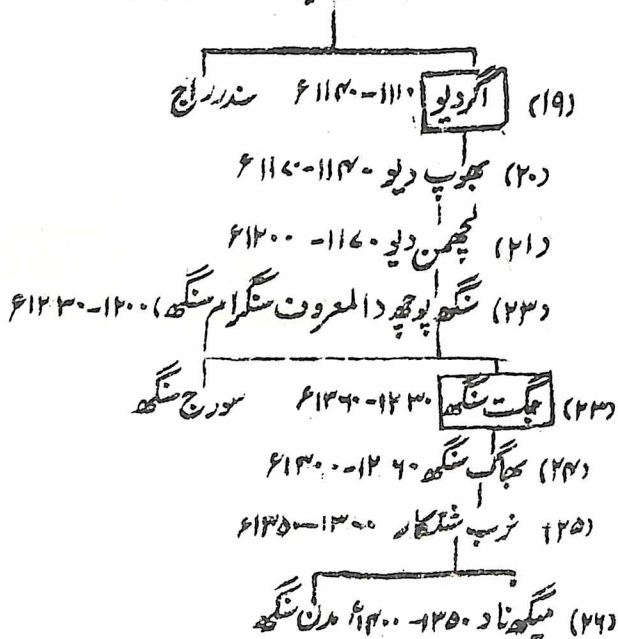 (۱۹) اگر دیو ۱۱۱۰-۱۱۴۰ء سندر راج
(۲۰) بھوپ دیو ۱۱۴۰-۱۱۷۰ء
(۲۱) لچھمن دیو ۱۱۷۰-۱۲۰۰ء
(۲۳) سنگھ پوچھ (المعروف سنگرام سنگھ) ۱۲۰۰-۱۲۳۰ء
(۲۳) جگت سنگھ ۱۲۳۰-۱۳۶۰ء سورج سنگھ
(۲۴) بھاگ سنگھ ۱۲۶۰-۱۳۰۰ء
(۲۵) نرب ۱۳۰۰-۱۳۵۰ء
(۲۶) میگھ ناد ۱۳۵۰-۱۴۰۰ء مدن سنگھ